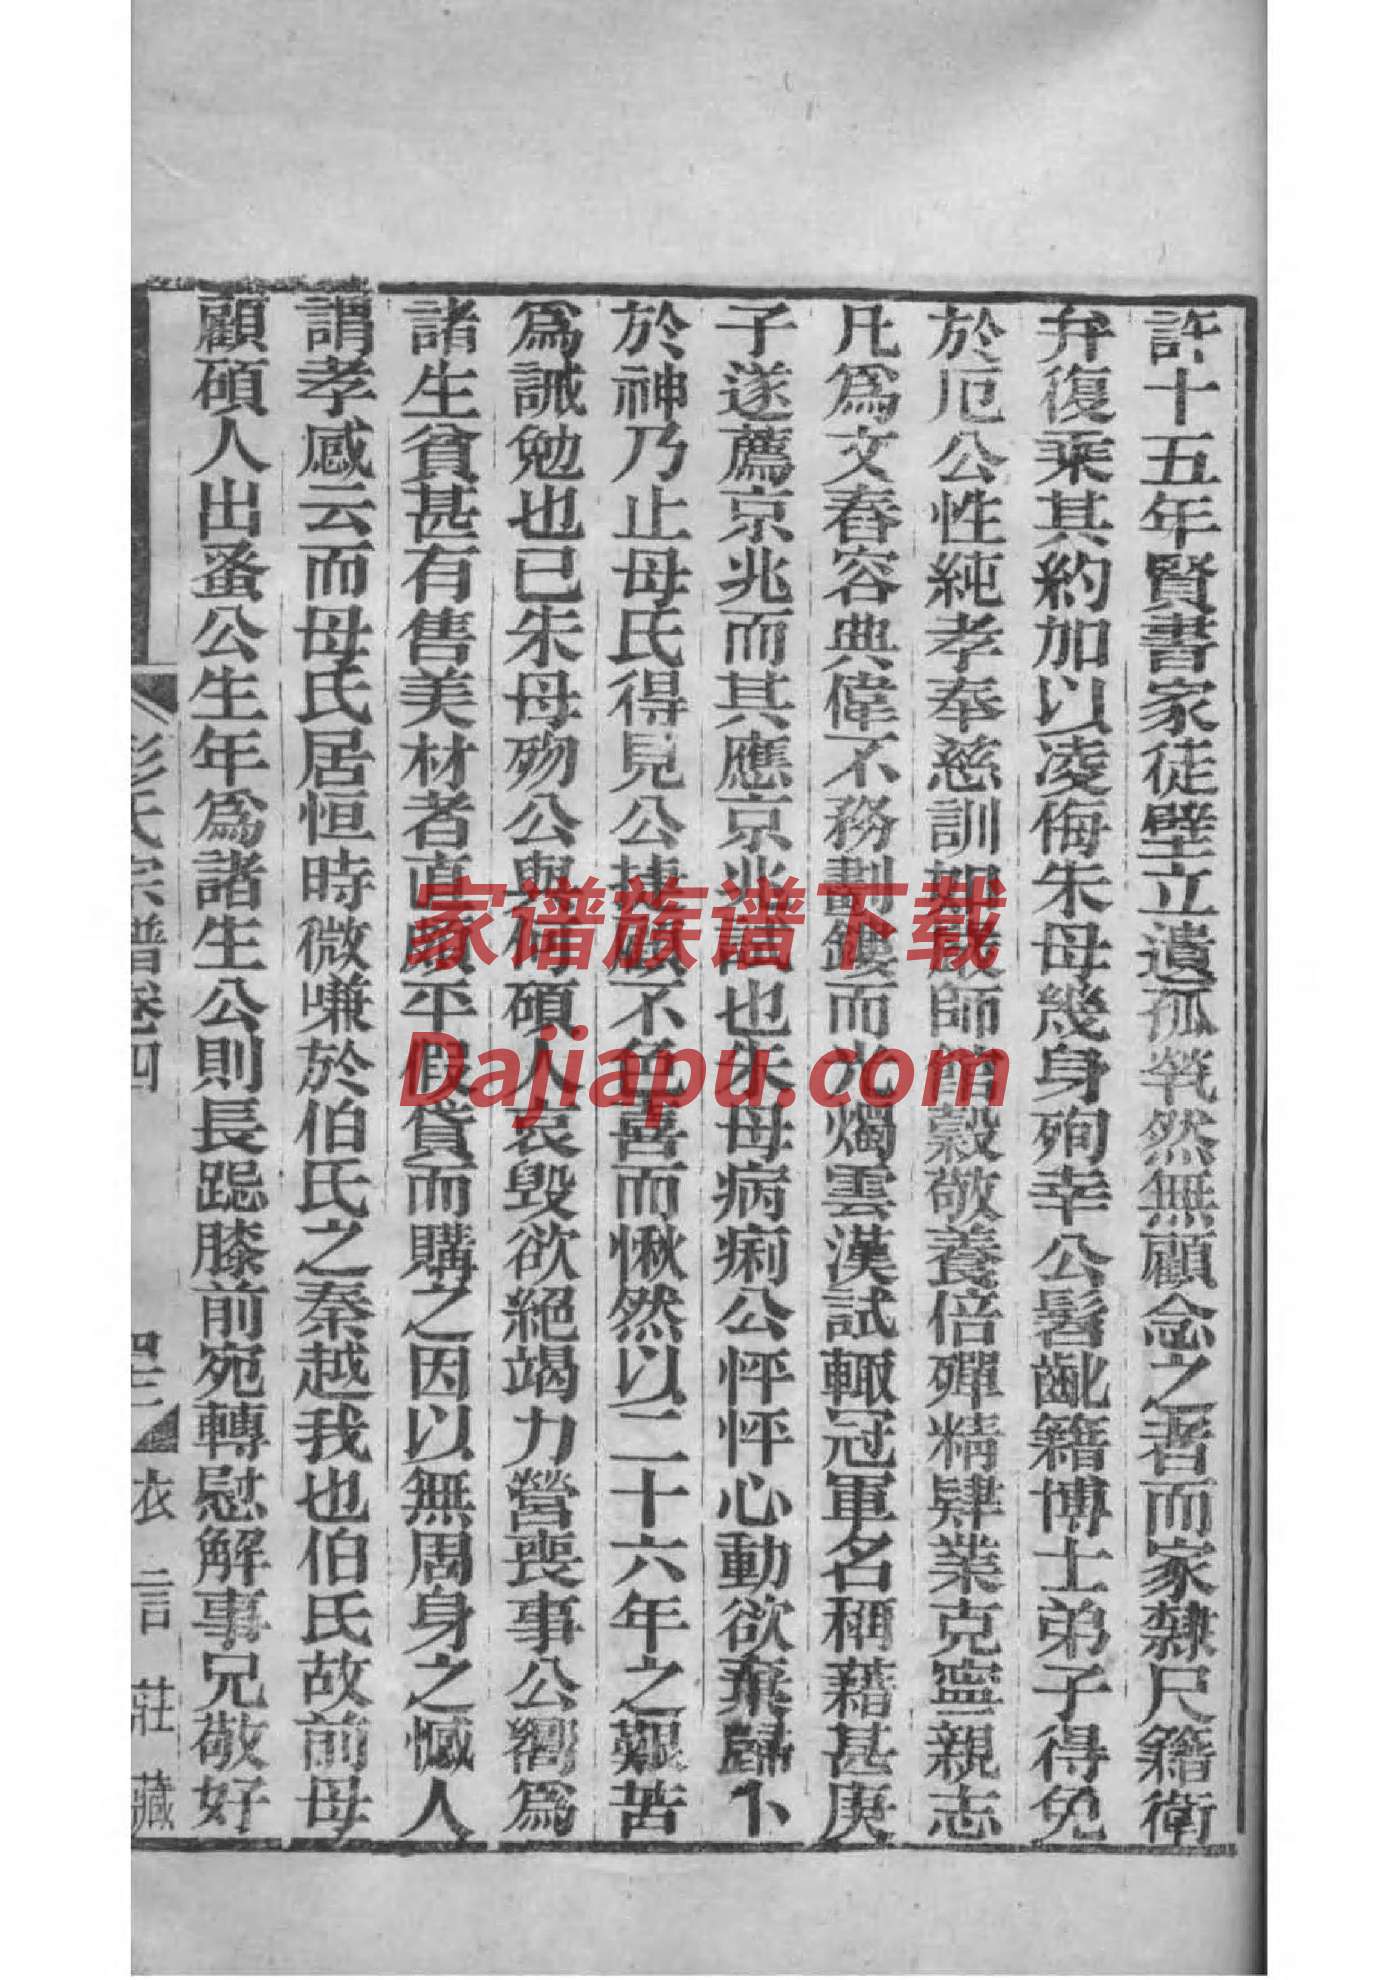 許十五年賢書家徒壁立遺孤煢然無顧念之者而家隸尺籍衛
弁復乘其約加以凌侮朱母幾身殉幸公髫齔籍博士弟子得免
於厄公性純孝奉慈訓如嚴師館穀敬養倍殫精肄業克寧親志
凡為文舂容典偉不務劃鏤而光燭雲漢試輙冠軍名稱藉甚庚
子遂薦京兆而其應京兆試也朱母病痢公怦怦心動欲棄歸卜
於神乃止母氏得見公捷顧不色喜而愀然以二十六年之艱苦
為誡勉也已朱母歿公與何碩人哀毀欲絕竭力營喪事公嚮為
諸生貧甚有售美材者直頗平假貸而購之因以無周身之憾人
謂孝感云而母氏居恒時微嗛於伯氏之秦越我也伯氏故前母
顧碩人出蚤公生年為諸生公則長跽膝前宛轉慰解事兄敬好
彭氏宗譜卷四
四二
衣言莊藏
家谱族谱下载
Dajiapu.com